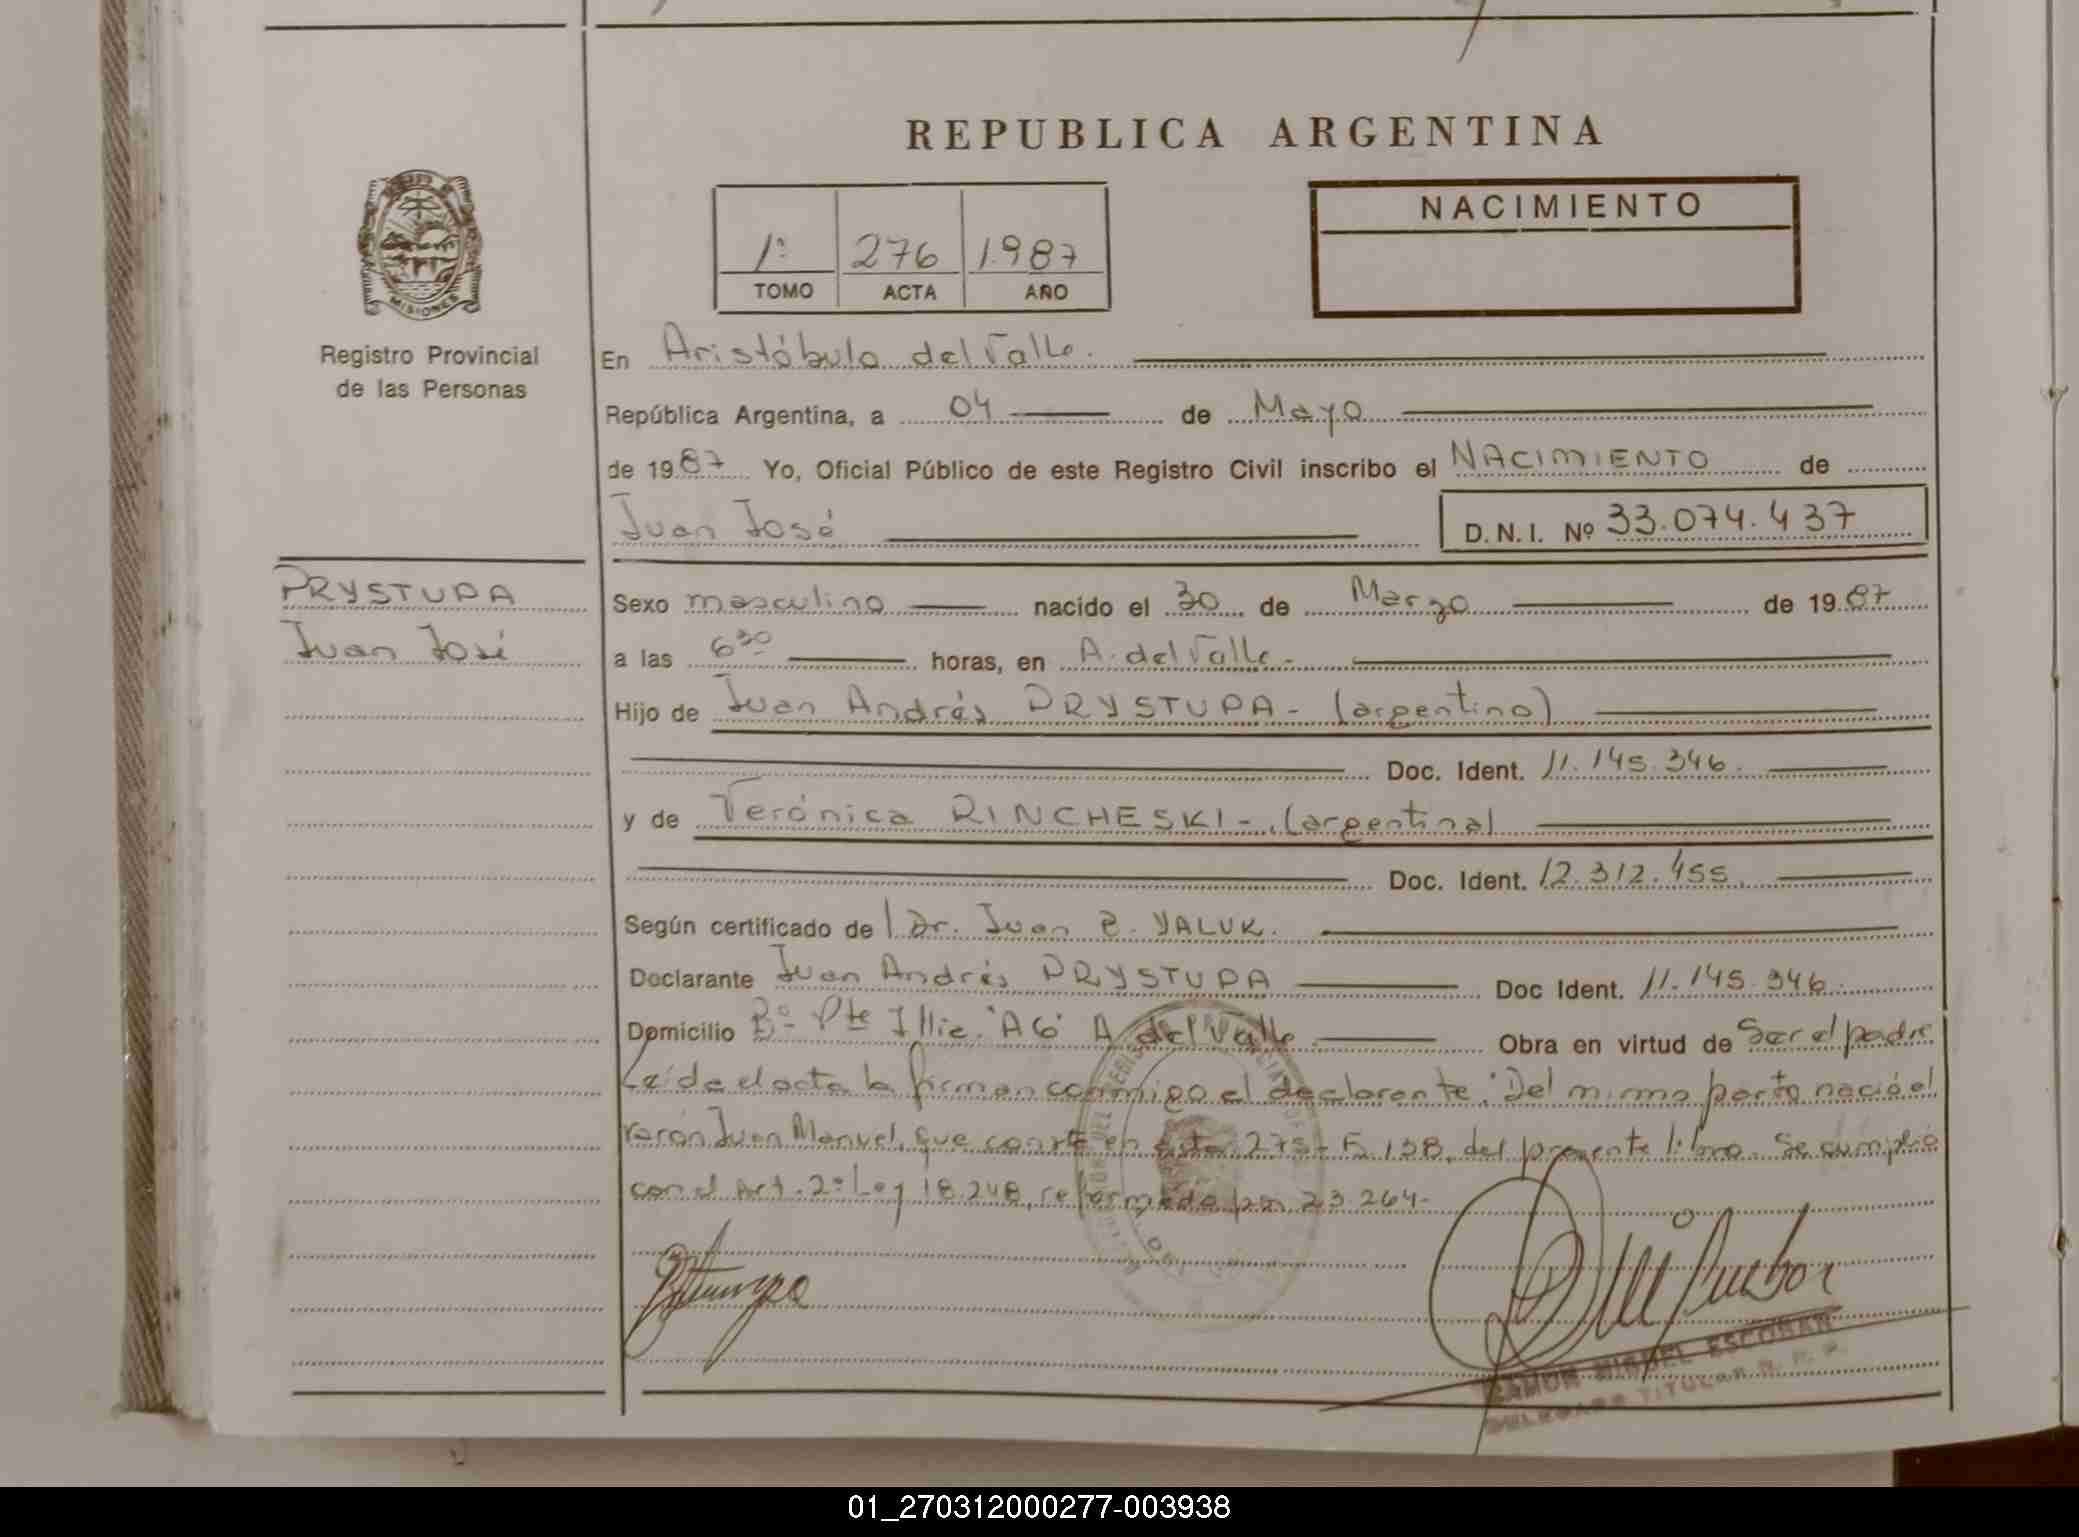 REPUBLICA ARGENTINA
NACIMIENTO
1º 276 1.987
TOMO ACTA AÑO
MISIONES
Registro Provincial
de las Personas
En Aristóbulo del Valle.
República Argentina, a 04 de Mayo
de 1987 Yo, Oficial Público de este Registro Civil inscribo el NACIMIENTO de
Juan José D.N.I. Nº 33.074.437
PRYSTUPA
Juan José
Sexo masculino nacido el 30 de Marzo de 1987
a las 6 30 horas, en A. del Valle-
Hijo de Juan Andrés PRYSTUPA - (argentino)
Doc. Ident. 11.145.346.
y de Verónica RINCHESKI - (argentina)
Doc. Ident. 12.312.455.
Según certificado de l Dr. Juan YALUK.
Declarante Juan Andrés PRYSTUPA Doc Ident. 11.145.346.
Domicilio Bº Pte Illia. "A6" A. del Valle Obra en virtud de Ser el padre
Leída el acta la firman conmigo el declarante. Del mismo parto nació el
varón Juan Manuel, que consta en acta 275- Fº 138, del presente libro. Se cumplió
con el Art. 2º Ley 18.248, reformado por 23.264-
RAMON MIGUEL ESCOBAR
DELEGADO TITULAR R. P. P.
01_270312000277-003938